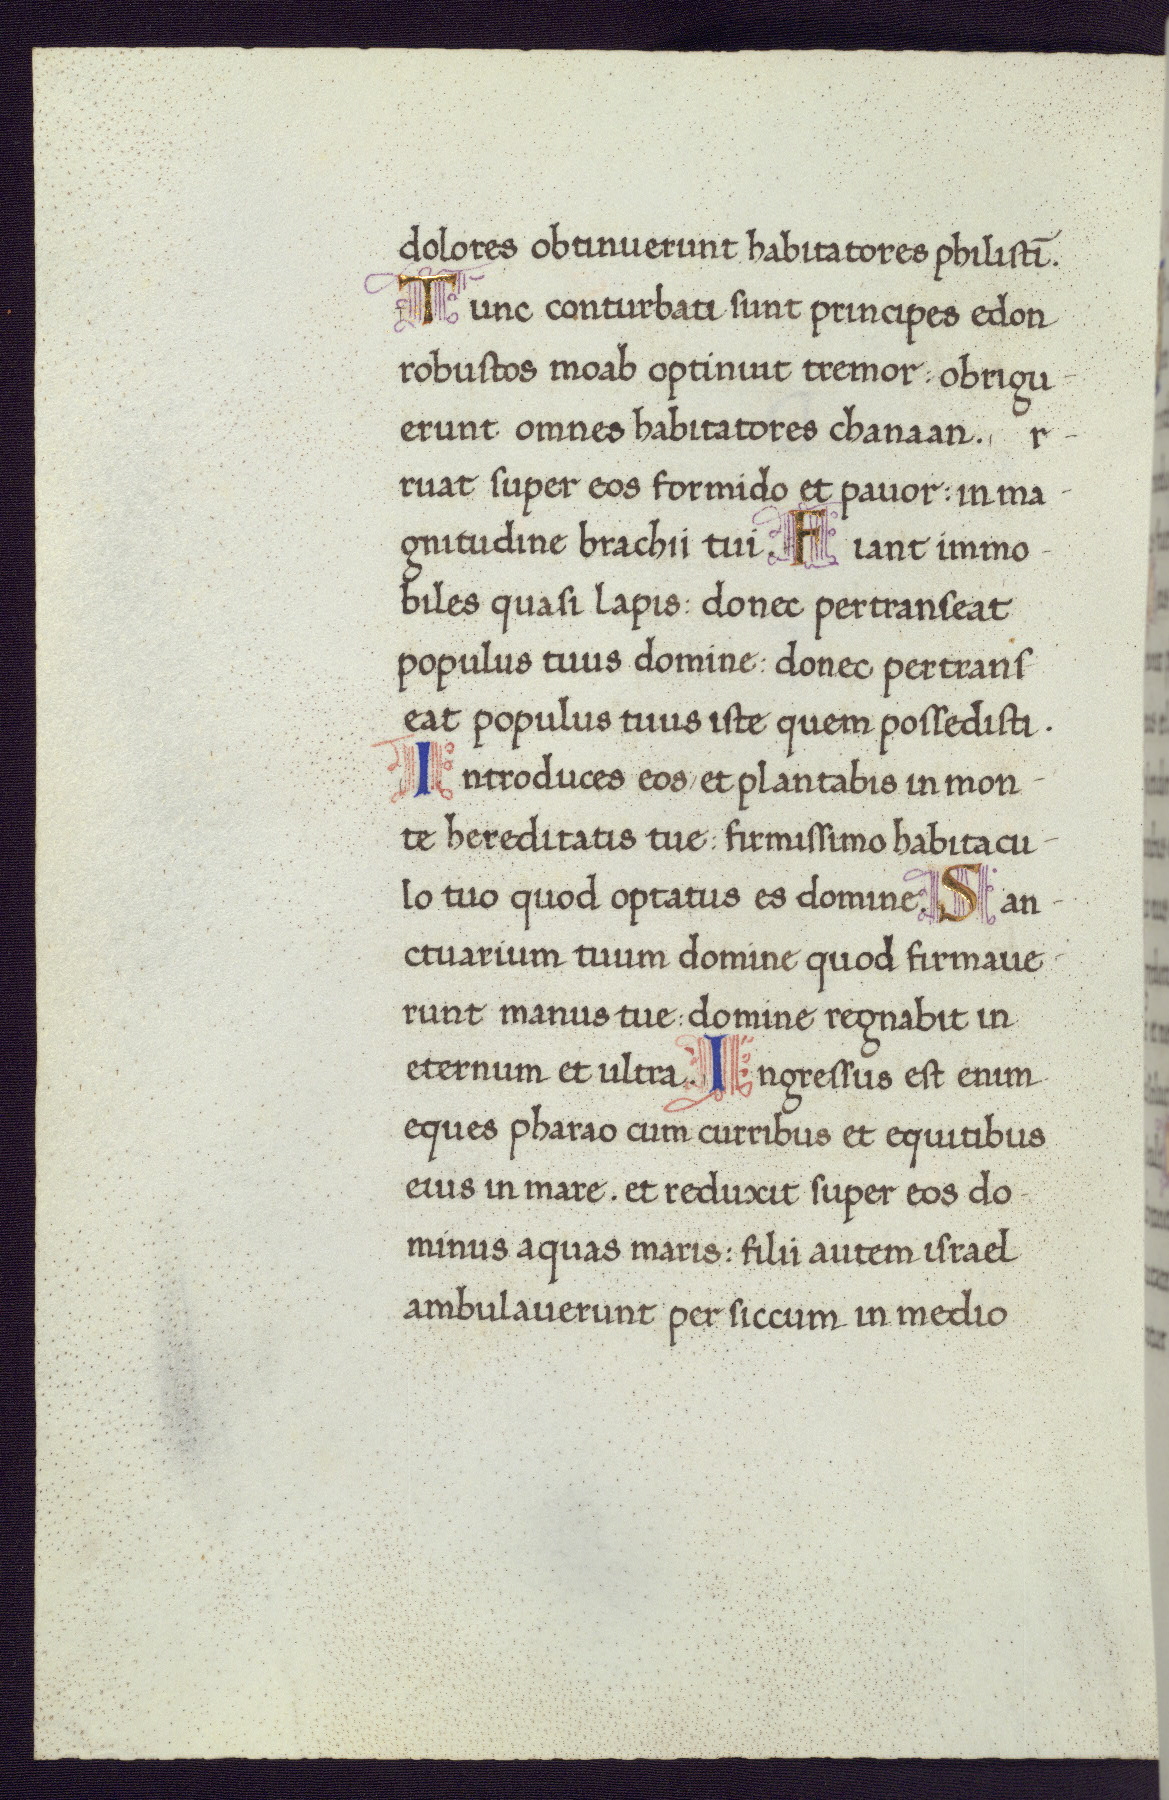 dolores obtinuerunt habitatores philistī.
Tunc conturbati sunt principes edon
robustos moab optinuit tremor: obrigu-
erunt omnes habitatores chanaan. r-
ruat super eos formido et pauor: in ma-
gnitudine brachii tui. Fiant immo-
biles quasi lapis: donec pertranseat
populus tuus domine: donec pertrans
eat populus tuus iste quem possedisti.
Introduces eos et plantabis in mon-
te hereditatis tue: firmissimo habitacu-
lo tuo quod optatus es domine. San-
ctuarium tuum domine quod firmaue-
runt manus tue: domine regnabit in
eternum et ultra. Ingressus est enim
eques pharao cum curribus et equitibus
eius in mare. et reduxit super eos do-
minus aquas maris: filii autem israel
ambulauerunt per siccum in medio